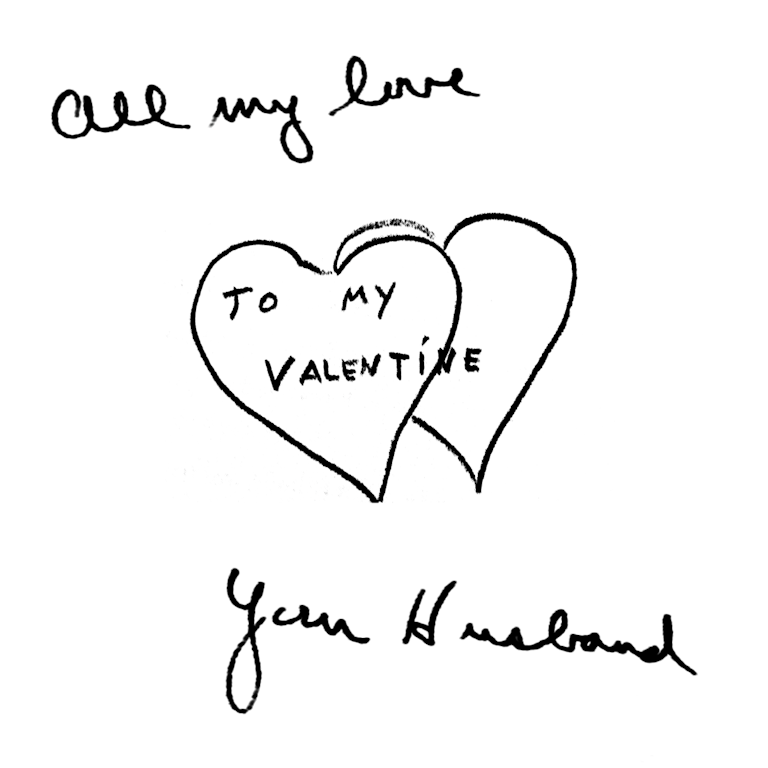 All my love
TO MY
VALENTINE
Your Husband